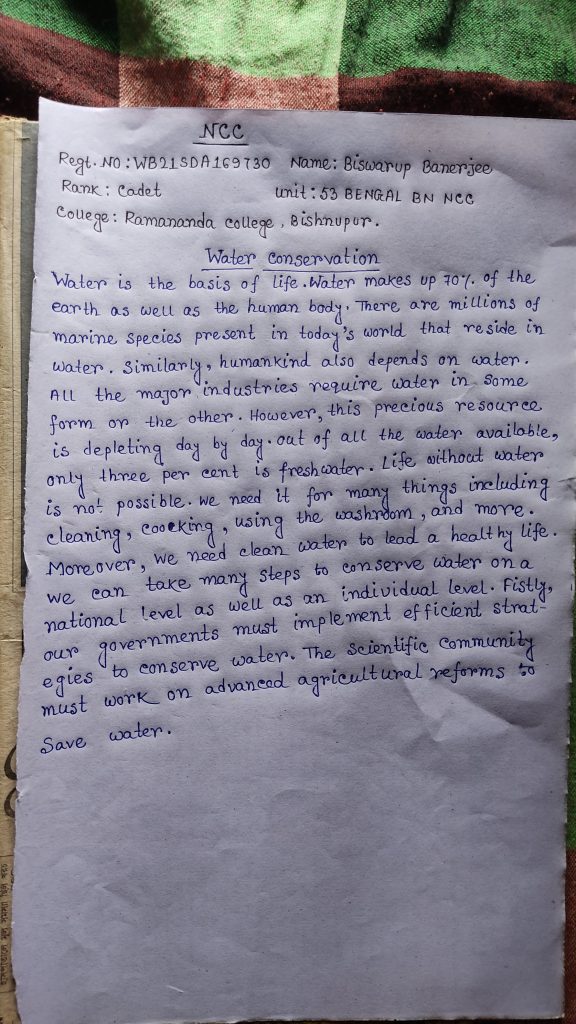 NCC
Regt. No : WB21SDA169730 Name: Biswarup Banerjee
Rank : Cadet unit : 53 BENGAL BN NCC
College : Ramananda college, Bishnupur.
Water conservation
Water is the basis of life. Water makes up 70% of the
earth as well as the human body. There are millions of
marine species present in today's world that reside in
water. Similarly, humankind also depends on water.
All the major industries require water in some
form or the other. However, this precious resource
is depleting day by day. out of all the water available,
only three per cent is freshwater. Life without water
is not possible. we need it for many things including
cleaning, coocking, using the washroom, and more.
Moreover, we need clean water to lead a healthy life.
we can take many steps to conserve water on a
national level as well as an individual level. Fistly,
our governments must implement efficient strat-
egies to conserve water. The scientific community
must work on advanced agricultural reforms to
save water.